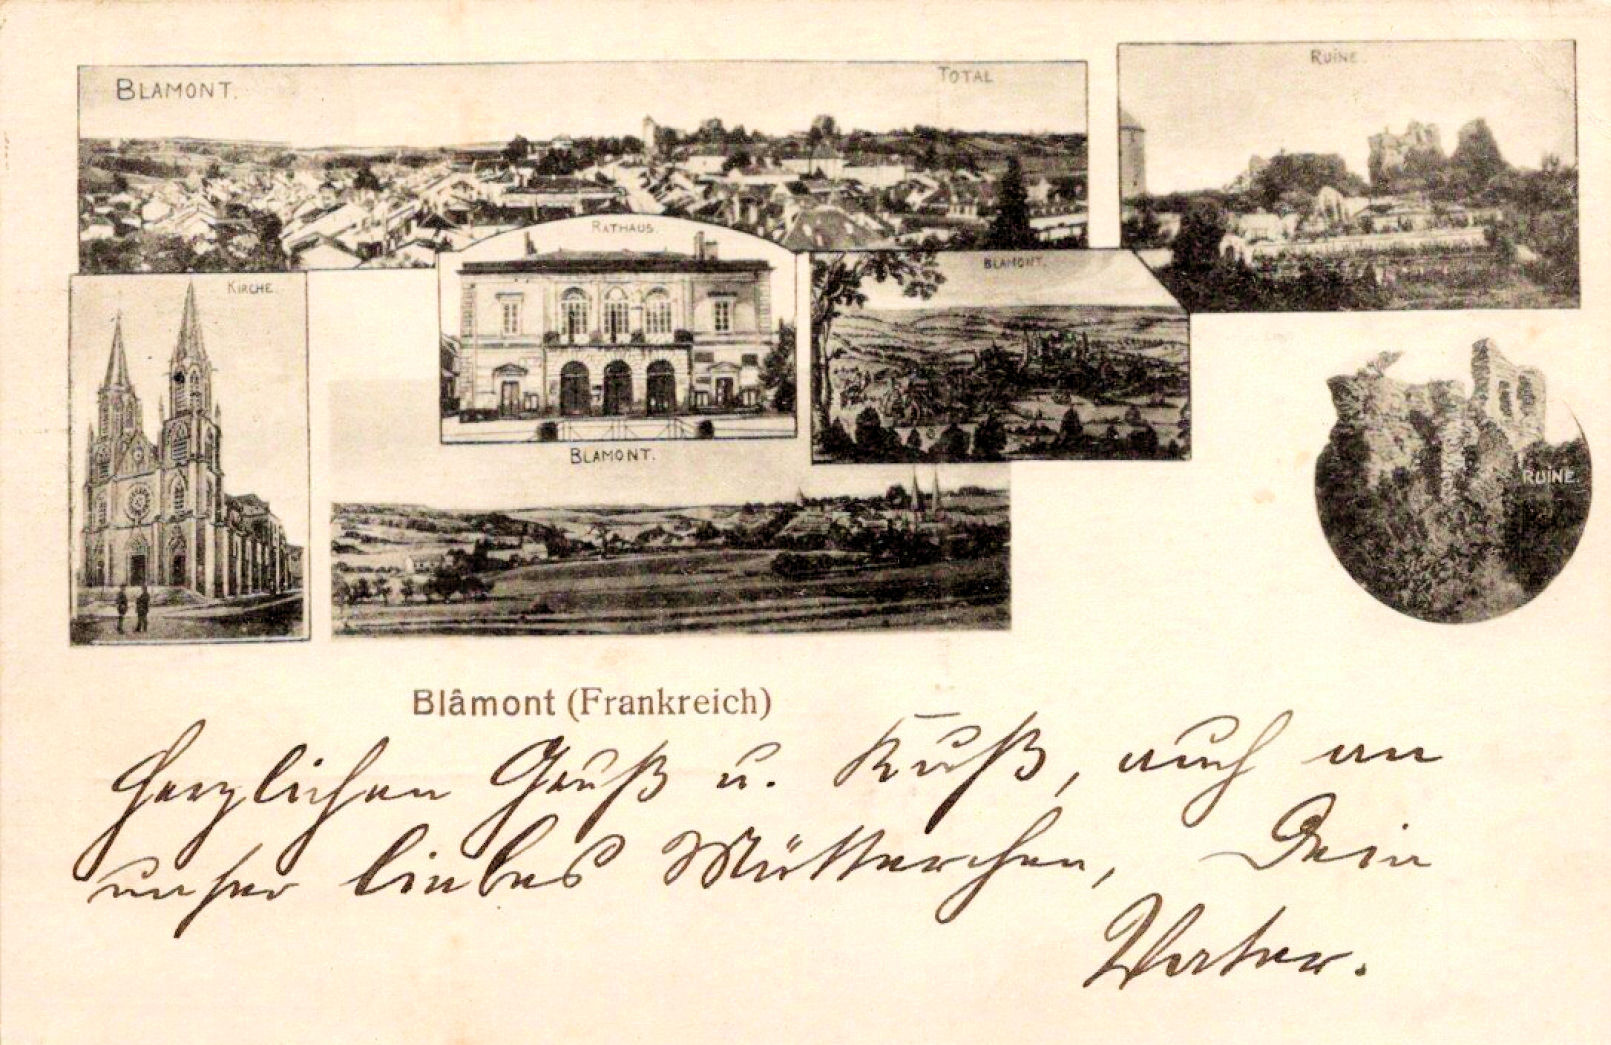 BLAMONT.
TOTAL
RUINE.
RATHAUS.
KIRCHE.
BLAMONT.
BLAMONT.
RUINE.
Blâmont (Frankreich)
Herzlichen Gruß u. Kuß, auch an
unser liebes Mütterchen, Dein
Vater.